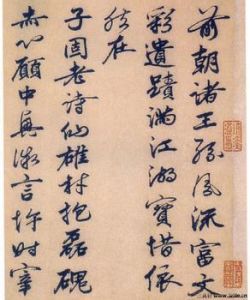 前朝諸王孫風流富文
彩遺蹟滿江湖寶惜依
然在
子固老詩仙雄材抱磊磈
赤心願中興激言忤時宰